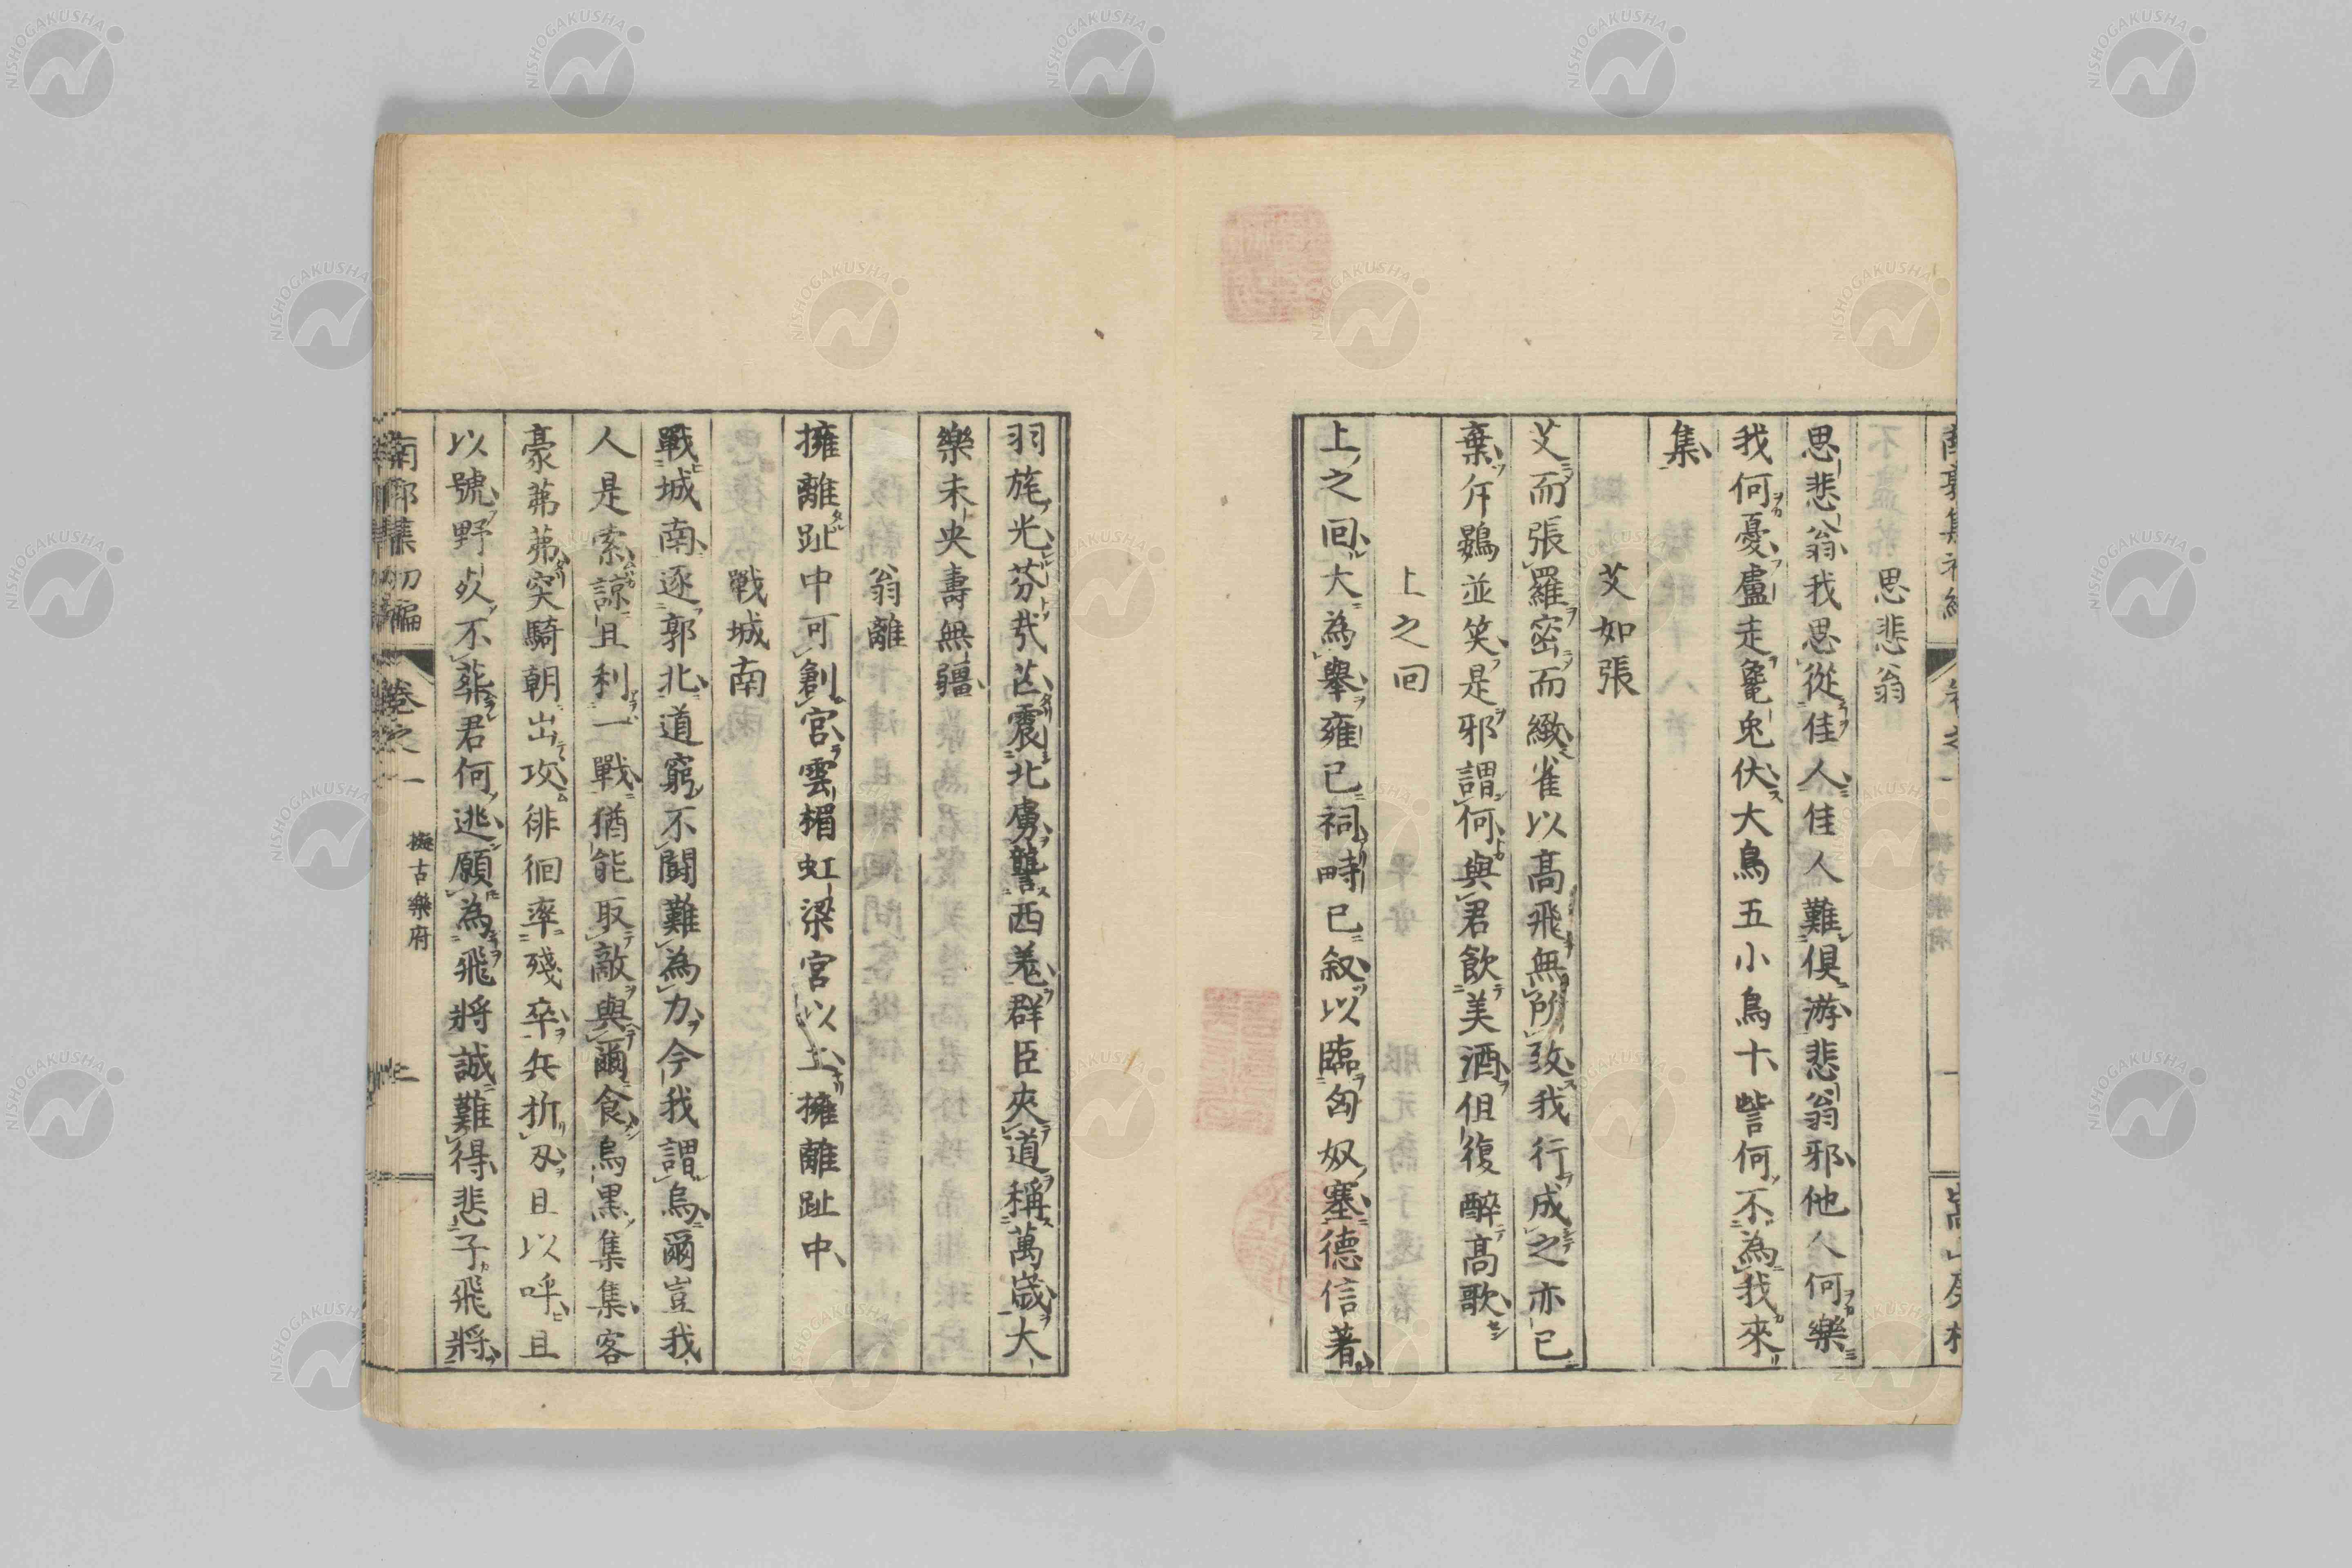 思悲翁
思悲翁我思從佳人佳人難俱游悲翁邪他人何樂
我何憂盧走毚兔伏大鳥五小鳥十訾何不為我來
集
艾如張
艾而張羅密而緻雀以高飛無所致我行成之亦已
棄斥鷃並笑是邪謂何與君飲美酒但復醉高歌
上之回
上之回大為舉雍已祠畤已叙以臨匈奴塞德信著
羽旄光芬茷芒震北虜讋西羌群臣夾道稱萬歲大
樂未央壽無疆
翁離
擁離趾中可創宮雲楣虹梁宮以上擁離趾中
戰城南
戰城南逐郭北道窮不鬪難為力今我謂烏爾豈我
人是索諒且利一戰猶能取敵與爾食烏黑集集客
豪茀茀突騎朝出攻徘徊率殘卒兵折刄且以呼且
以號野奴不葬君何逃願為飛將誠難得悲子飛將
南郭集初編 卷之一 擬古樂府 二
NISHOGAKUSHA